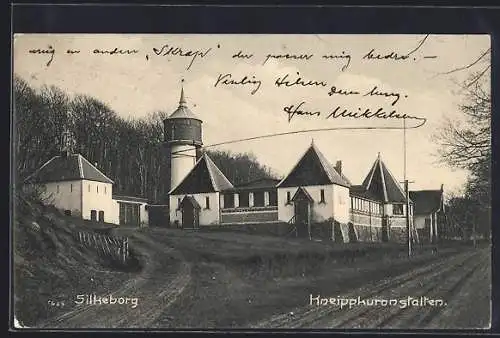 mig en anden „Skrap" der passer mig bedre.
Venlig Hilsen
Hans Mikkelsen
Silkeborg
Kneippkuranstalten.